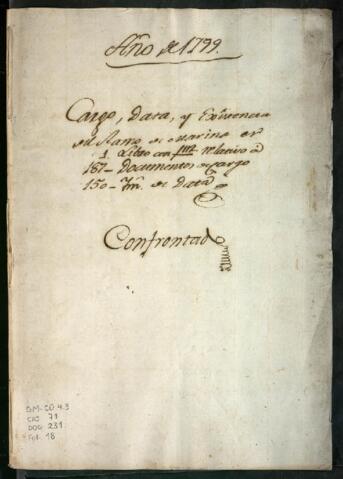 Año de 1799.
Cargo, Data, y Existencia
del Ramo de Marina en
1. Libro con relativo á
187- Documentos de Cargo
150- Ym. de Data
Confrontado
OM-CO 4.3
CAJ 71
DOC 231
Fol. 18